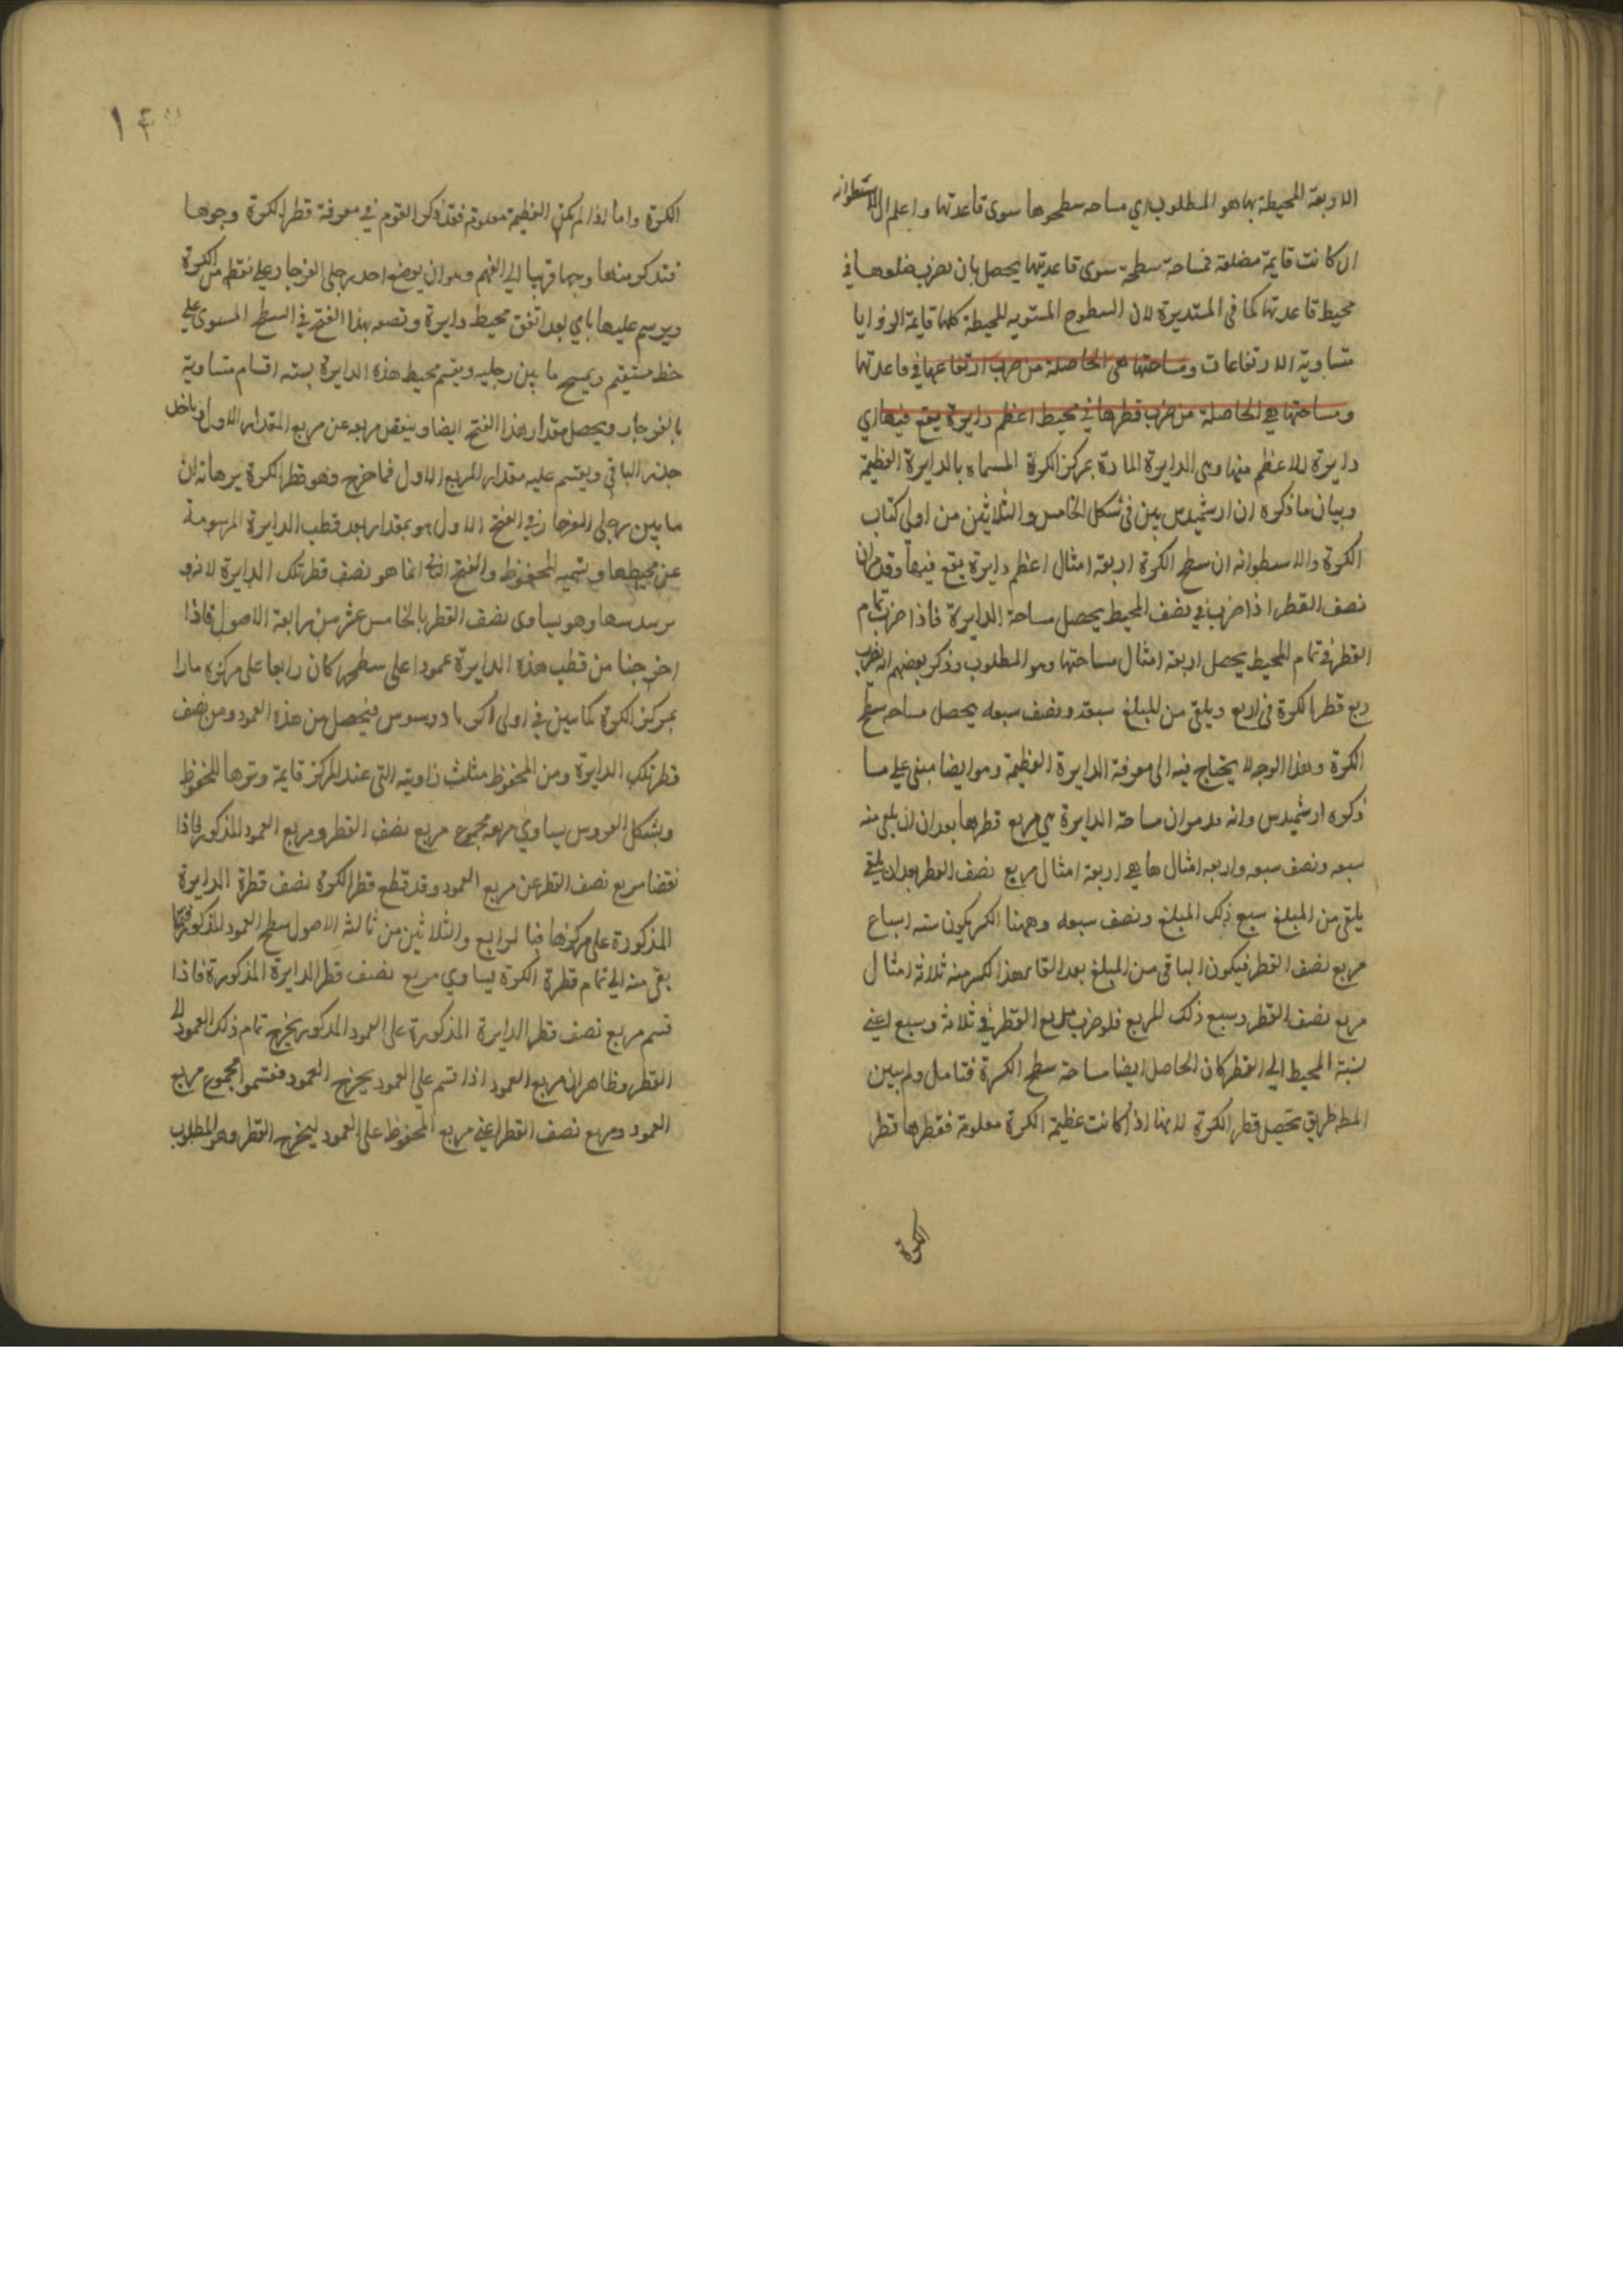 الاربعة المحيطة بها هو المطلوب اي مساحه سطحوها سوى قاعدتها واعلم ان الاسطوانه
ان كانت قايمة مضلعة فمساحة سطحه سوى قاعدتيها يحصل بان يضرب ضلعوها في
محيط قاعدتها كما في المستديرة لان السطوح المستويه المحيطة كلها قايمة الزوايا
متساوية الارتفاعات ومساحتها هى الحاصلة من ضرب ارتفاعها في قاعدتها
ومساحتها هي الحاصلة من ضرب قطرها في محيط اعظم دايرة يقع فيها اي
دايرة لا اعظم منها وهى الدايرة المارة بمركز الكرة المسماه بالدايرة العظيمة
وبيان ما ذكره ان ارشميدس بين في شكل الخامس والثلاثين من اولى كتاب
الكرة والاسطوانه ان سطح الكرة اربعة امثال اعظم دايرة يقع فيها وقد مر ان
نصف القطر اذا ضرب في نصف المحيط يحصل مساحة الدايرة فاذا ضرب تمام
القطر في تمام المحيط يحصل اربعة امثال مساحتها وهو المطلوب وذكر بعضهم انه يضرب
ربع قطر الكرة في اربع ويلقى من المبلغ سبعه ونصف سبعه يحصل مساحه سطح
الكرة وهذا الوجه لا يحتاج فيه الى معرفة الدايرة العظيمة وهو ايضا مبنى على ما
ذكره ارشميدس وانه قد مر ان مساحة الدايرة هي مربع قطرها بعد ان يلقى منه
سبعه ونصف سبعه واربعه امثال هاهي اربعة امثال مربع نصف القطر بعد ان يلقى
يلقى من المبلغ سبع ذلك المبلغ ونصف سبعه وههنا الكسر يكون سته اسباع
مربع نصف القطر فيكون الباقى من المبلغ بعد القا هذا الكسر منه ثلاثه امثال
مربع نصف القطر وسبع ذلك المربع فلو ضرب مربع القطر في ثلاثه وسبع اعني
نسبة المحيط الى القطر كان الحاصل ايضا مساحة سطح الكرة فتامل ولم يبين
المط طريق تحصيل قطر الكرة لانها اذا كانت عظيمة الكرة معلومة فقطرها قطر
الكرة
الكرة واما اذا لم يكن العظيمة معلومة فقد ذكر القوم في معرفة قطر الكرة وجوها
فنذكر منها وجها قريبا الى الفهم وهو ان يوضع احد رجلى الفرجار على نقطه من الكرة
ويرسم عليها باي بعد اتفق محيط دايرة ونضعه بهذا الفتح في السطح المستوى على
خط مستقيم ويمسح ما بين رجليه ويقسم محيط هذه الدايرة بسته اقسام متساوية
بالفرجار ويحصل مقدار هذا الفتح ايضا وينقص مربعه عن مربع المقدار الاول وياخذ
جذر الباقي ويقسم عليه مقدار المربع الاول فما خرج فهو قطر الكرة برهانه ان
ما بين رجلى الفرجار في الفتح الاول هو بمقدار بعد قطب الدايرة المرسومة
عن محيطها ونسميه المحفوظ والفتح الثاني انما هو نصف قطر تلك الدايرة لانه وتر
سدسها وهو يساوى نصف القطر بالخامس عشر من رابعة الاصول فاذا
اخرجنا من قطب هذه الدايرة عمودا على سطحها كان واقعا على مركزه مارا
بمركز الكرة كما بين في اولى اكر ثاودوسيوس فيحصل من هذه العمود ومن نصف
قطر تلك الدايرة ومن المحفوظ مثلث زاويته التى عند المركز قايمة وترها المحفوظ
وبشكل العروس يساوي مربعه مجموع مربع نصف القطر ومربع العمود المذكور فاذا
نقصنا مربع نصف القطر عن مربع العمود وقد قطع قطر الكرة نصف قطرة الدايرة
المذكورة على مركزها فبالرابع والثلاثين من ثالثة الاصول سطح العمود المذكور فيما
بقى منه الى تمام قطرة الكرة يساوي مربع نصف قطر الدايرة المذكورة فاذا
قسم مربع نصف قطر الدايرة المذكورة على العمود المذكور يخرج تمام ذلك العمود الى
القطر وظاهر ان مربع العمود اذا قسم على العمود يخرج العمود فقسموا مجموع مربع
العمود ومربع نصف القطر اعني مربع المحفوظ على العمود ليخرج القطر وهو المطلوب